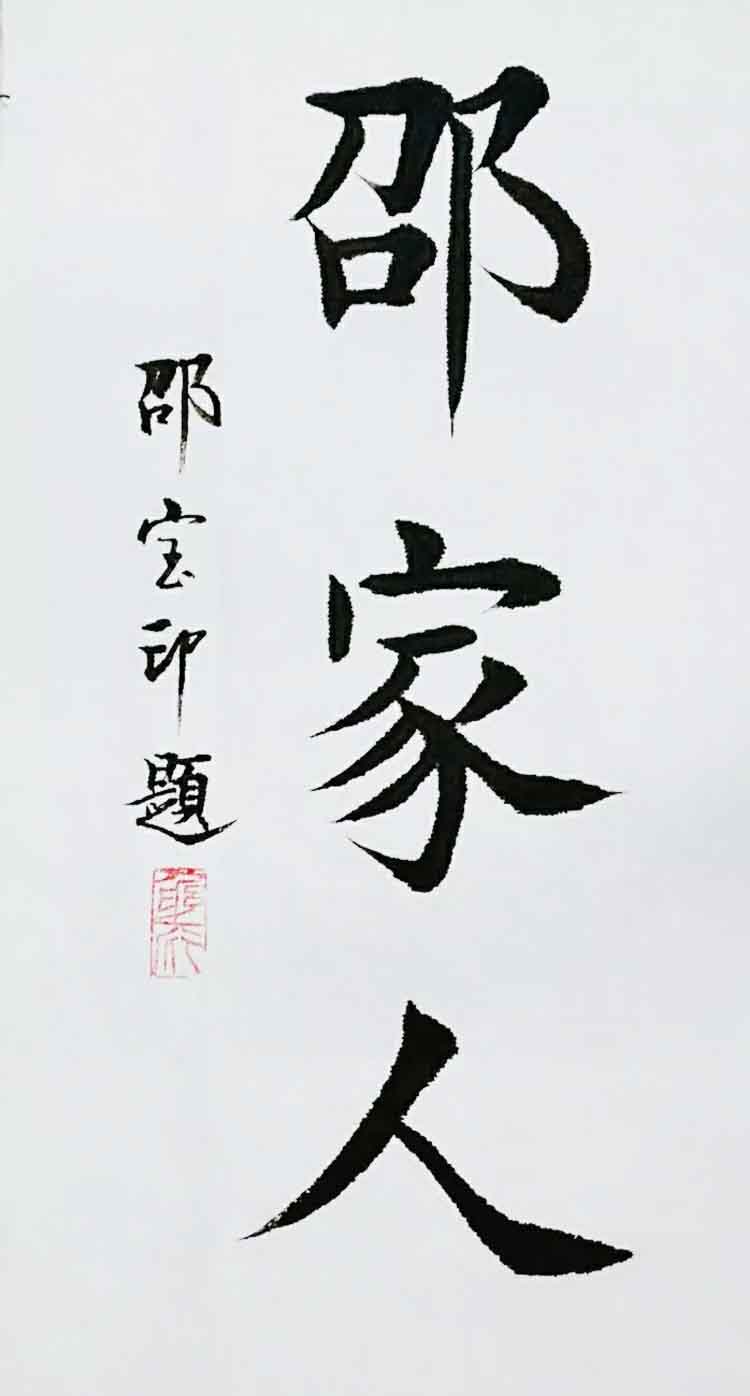 邵家人
邵宝印题